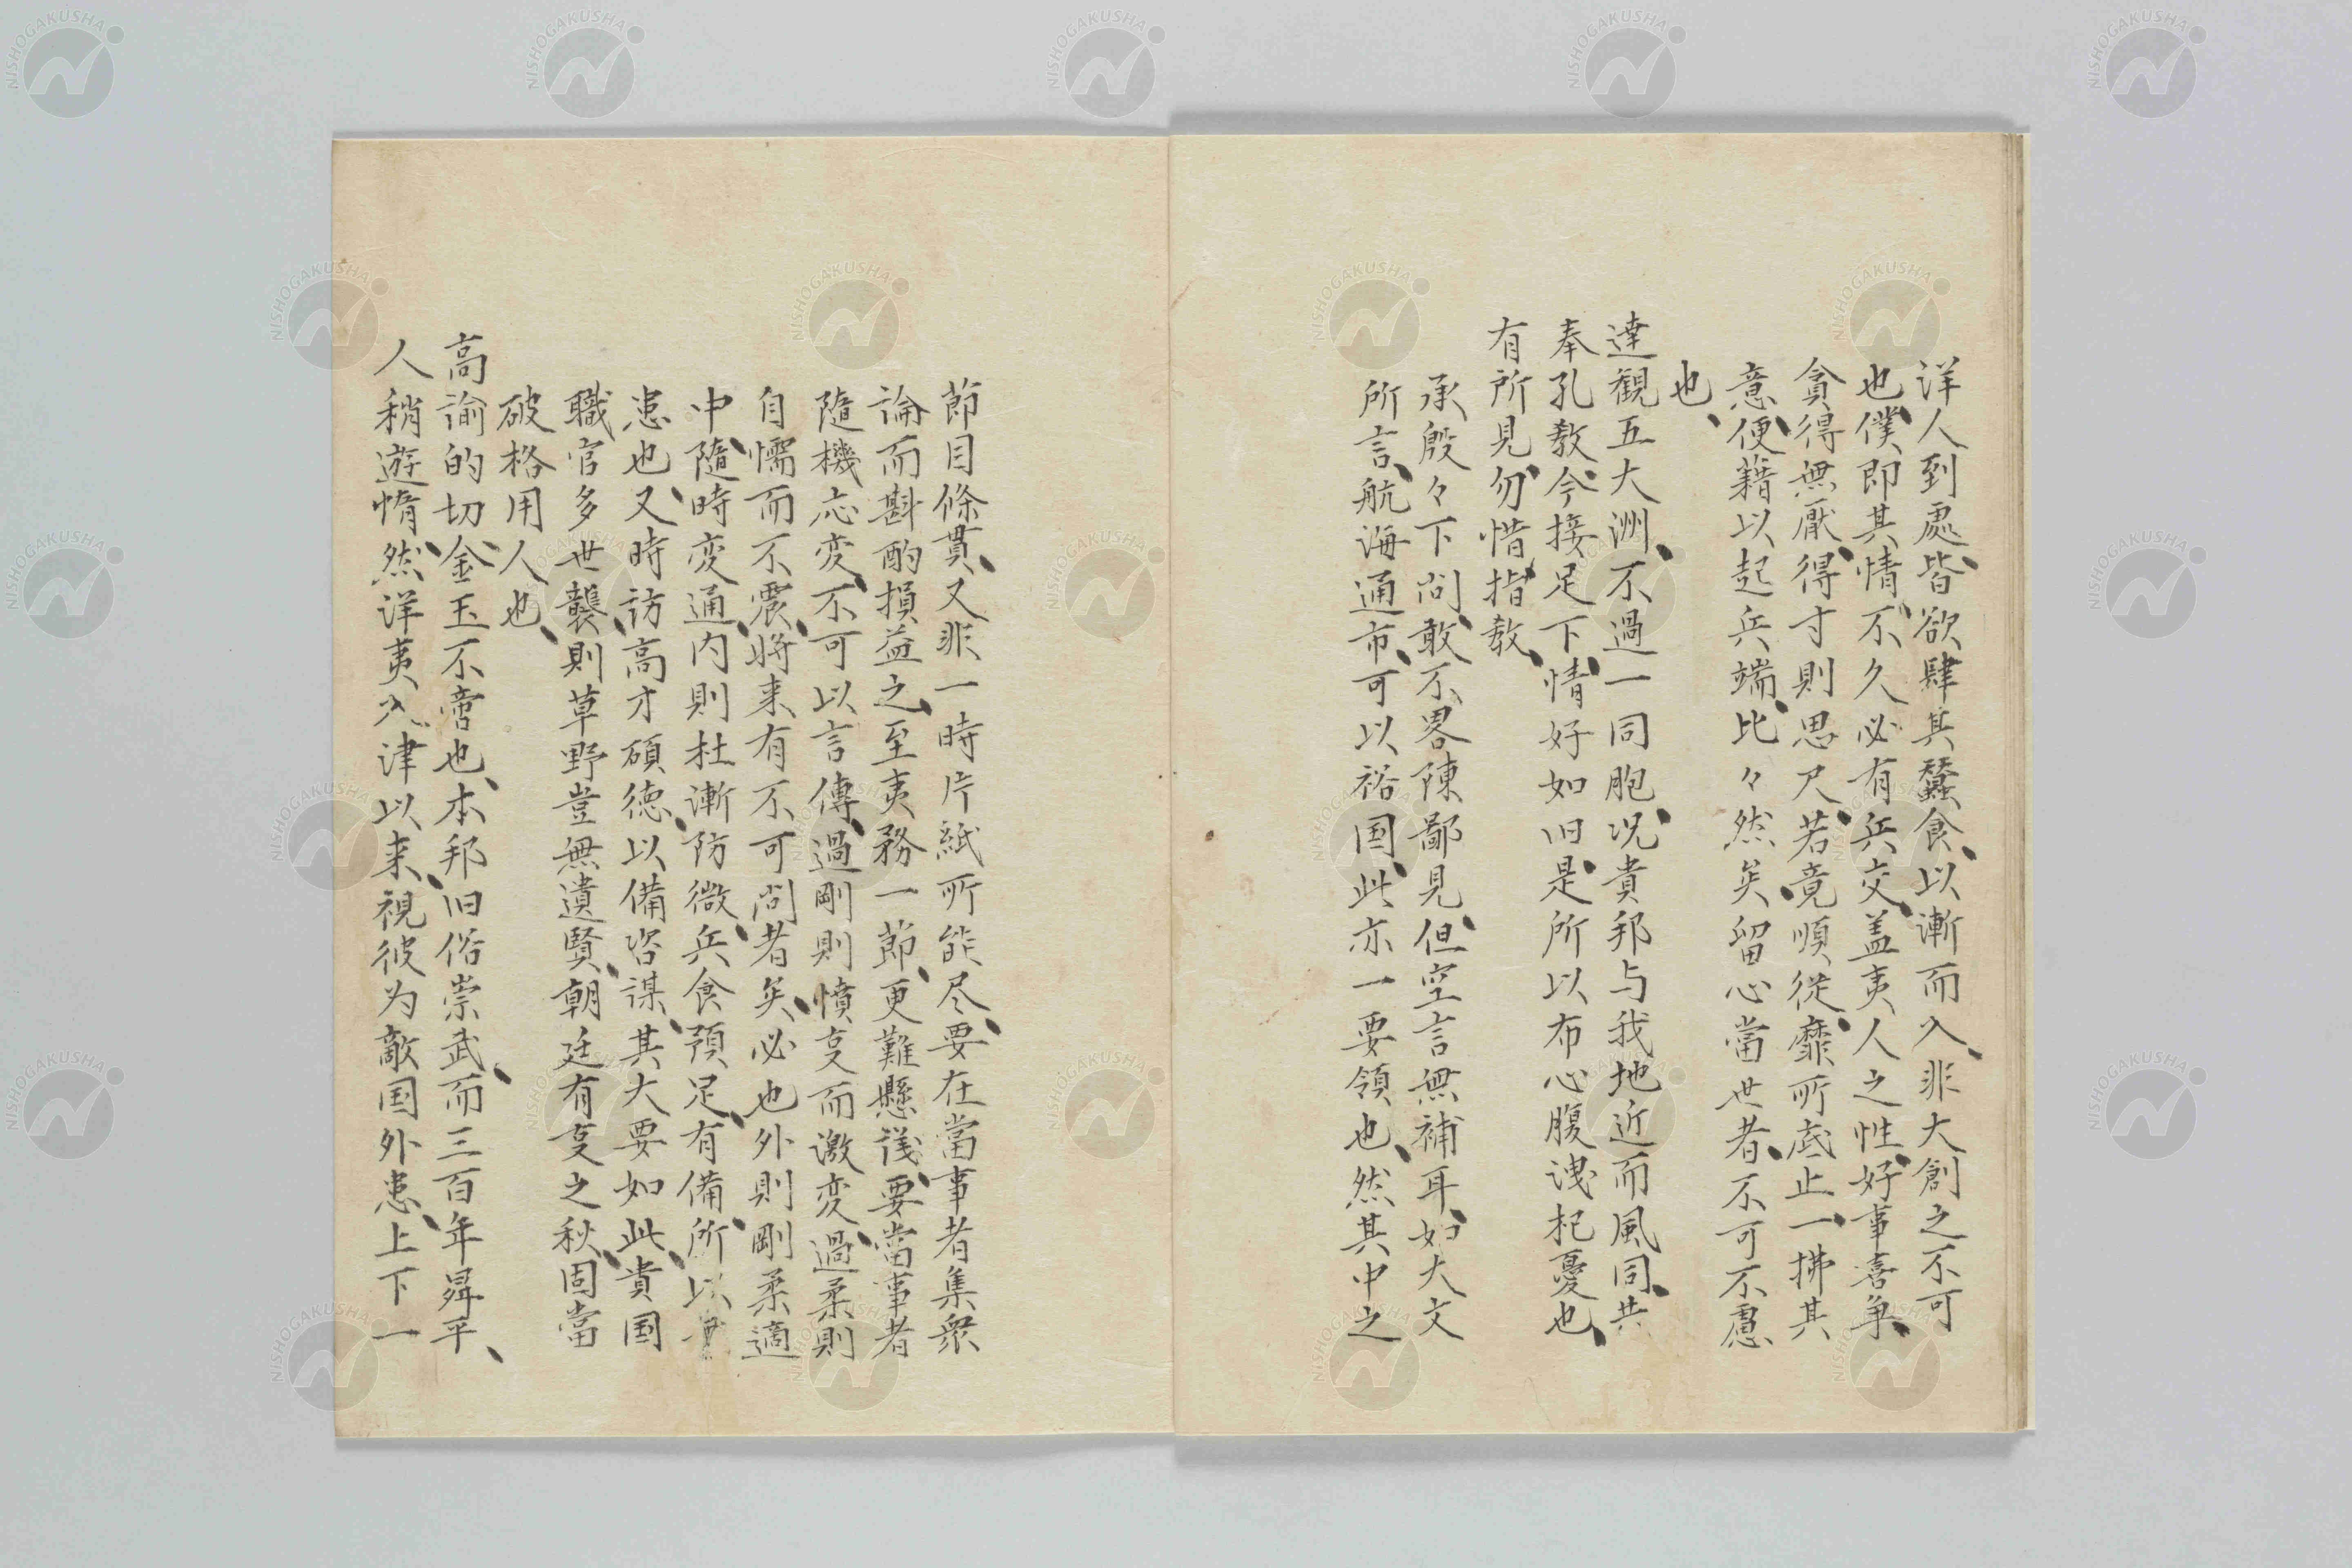 洋人到處、皆欲肆其蠶食、以漸而入、非大創之不可
也、僕即其情、不久必有兵交、盖夷人之性、好事喜争、
貪得無厭、得寸則思尺、若竟順從、靡所底止、一拂其
意、便藉以起兵端、比々然矣、留心當世者、不可不慮
也、
達観五大洲、不過一同胞、况貴邦与我地近而風同、共
奉孔教、今接足下、情好如旧、是所以布心腹洩杞憂也、
有所見、勿惜指教、
承殷々下问、敢不畧陳鄙見、但空言無補耳、如大文
所言、航海通市、可以裕国、此亦一要領也、然其中之
節目條貫、又非一時片紙所能尽、要在當事者集衆
論而斟酌損益之、至夷務一節、更難懸議、要當事者
隨機応変、不可以言傳、過剛則憤㕝而激変、過柔則
自懦而不震、将来有不可问者矣、必也外則剛柔適
中、隨時変通、内則杜漸防微、兵食預足、有備所以無
患也、又時訪高才碩徳、以備咨謀、其大要如此、貴国
職官多世襲、則草野豈無遺賢、朝廷有㕝之秋、固當
破格用人也、
高諭的切、金玉不啻也、本邦旧俗崇武、而三百年昇平、
人稍遊惰、然洋夷入津以来、視彼为敵国外患、上下一
NISHOGAKUSHA